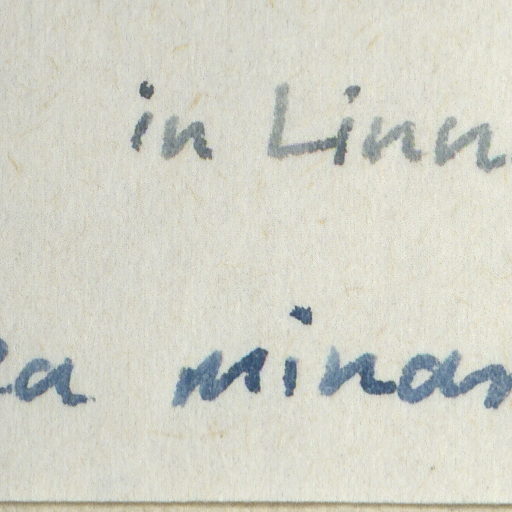 in Linn
ea minar